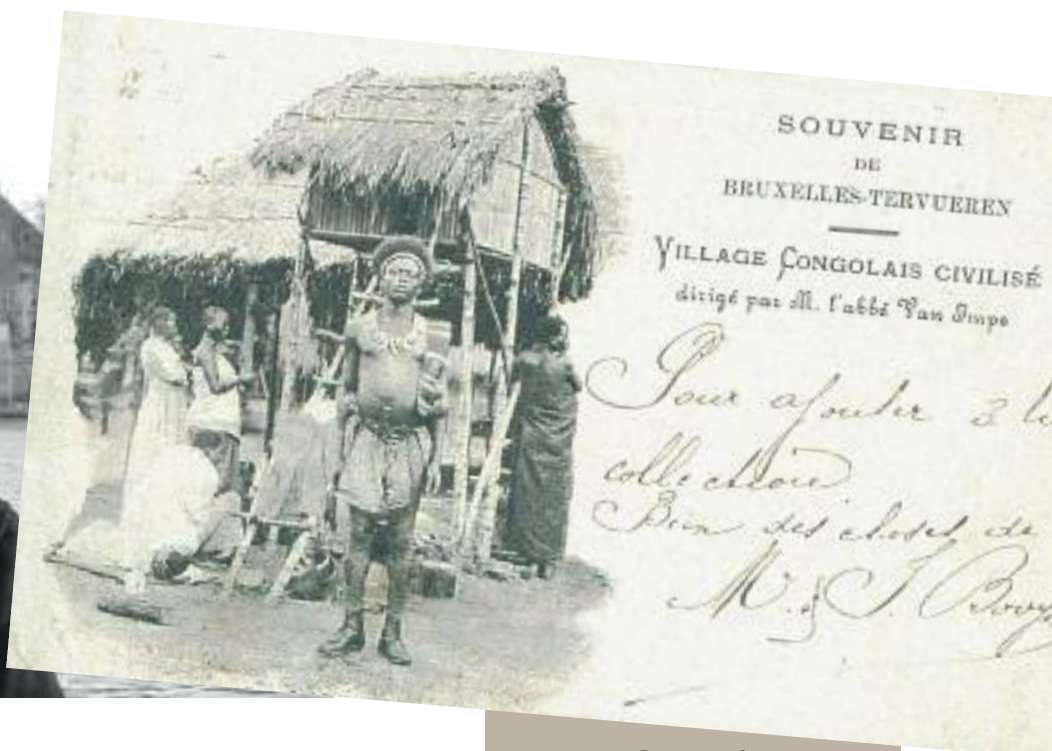 SOUVENIR
DE
BRUXELLES-TERVUEREN
VILLAGE CONGOLAIS CIVILISÉ
dirigé par M. l'abbé Van Impe
Pour ajouter à
collection
Bien des choses de
M. & J.